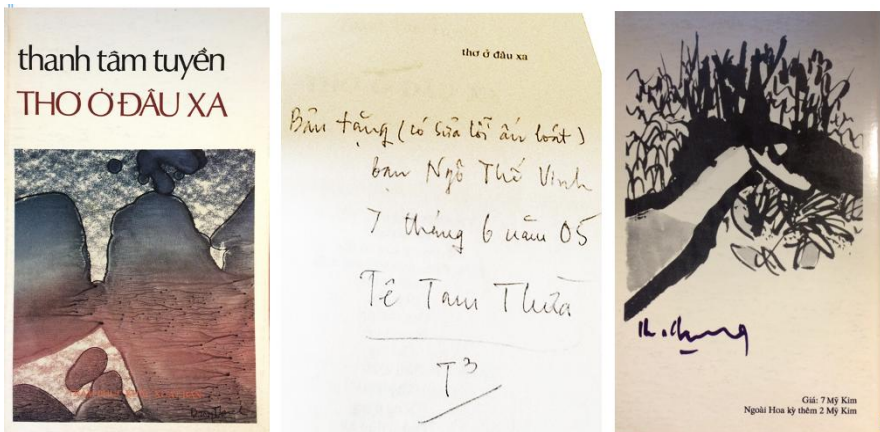 thanh tâm tuyền
THƠ Ở ĐÂU XA
thơ ở đâu xa
Bản tặng (có sửa lỗi ấn loát)
bạn Ngô Thế Vinh
7 tháng 6 năm 05
Tê Tam Thừa
T³
Giá: 7 Mỹ Kim
Ngoài Hoa kỳ thêm 2 Mỹ Kim